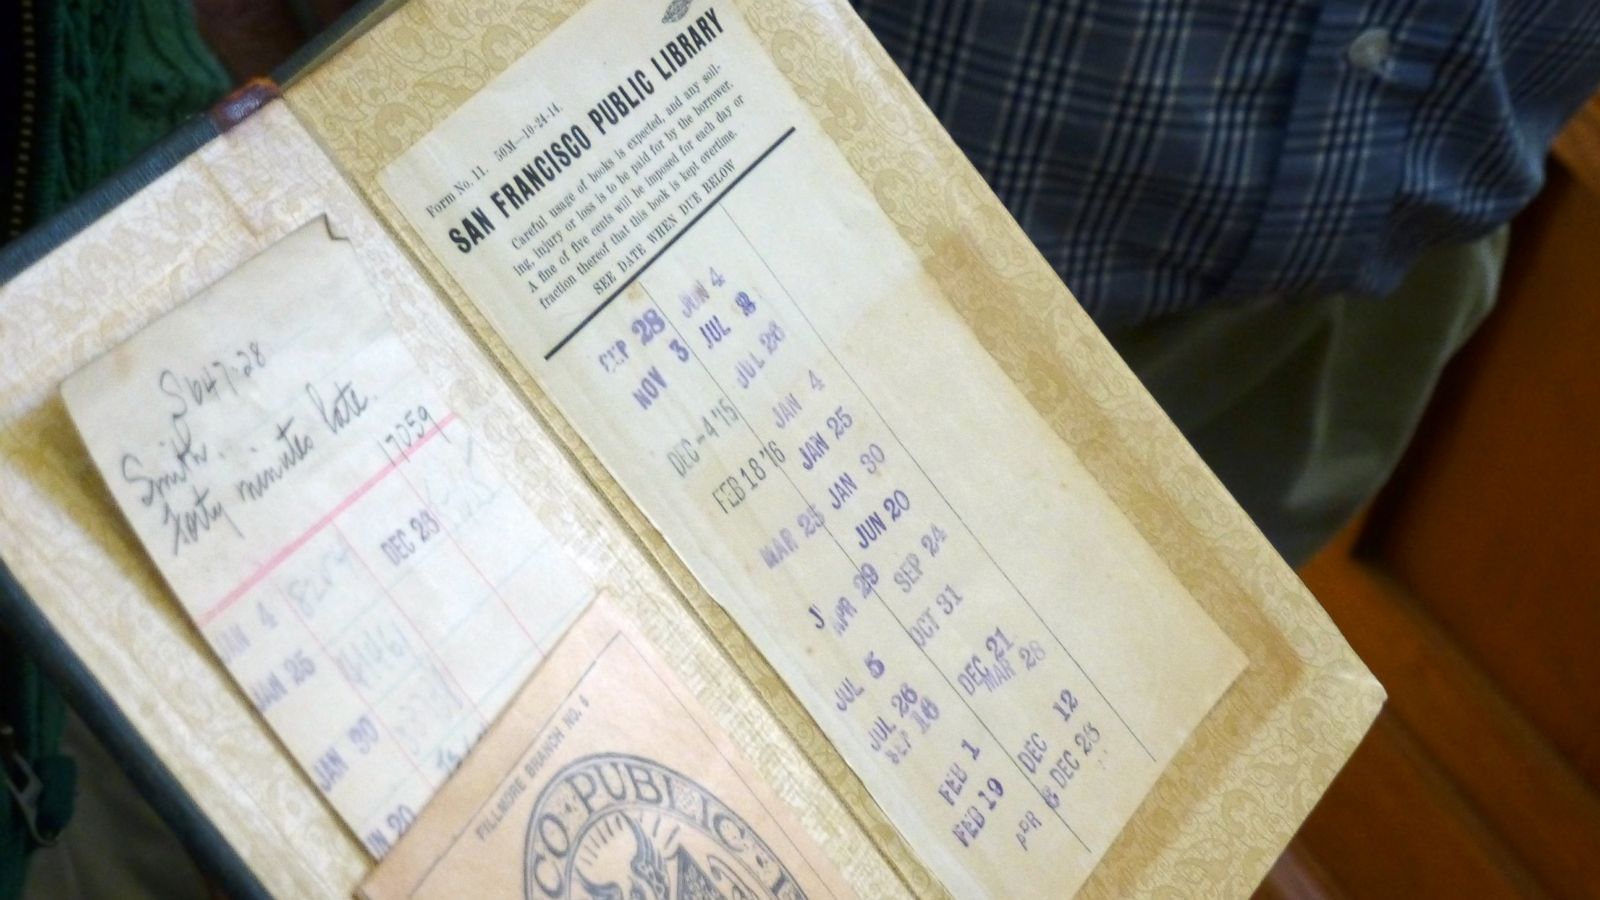 S647.28
Smith.
Forty minutes late.
7059
DEC 23
JAN 4
JAN 25
JAN 30
N 20
FILLMORE BRANCH NO. 6
CO PUBLIC
Form No. 11. 50M—10-24-14.
SAN FRANCISCO PUBLIC LIBRARY
Careful usage of books is expected, and any soil-
ing, injury or loss is to be paid for by the borrower.
A fine of five cents will be imposed for each day or
fraction thereof that this book is kept overtime.
SEE DATE WHEN DUE BELOW
SEP 28 JUN 4
NOV 3 JUL 2
DEC-4 '15 JUL 26
FEB 18 '16 JAN 4
MAR 25 JAN 25
J APR 29 JAN 30
JUL 5 JUN 20
JUL 26 SEP 24
SEP 16 OCT 31
FEB 1 DEC 21
FEB 19 MAR 28
DEC 12
APR DEC 26